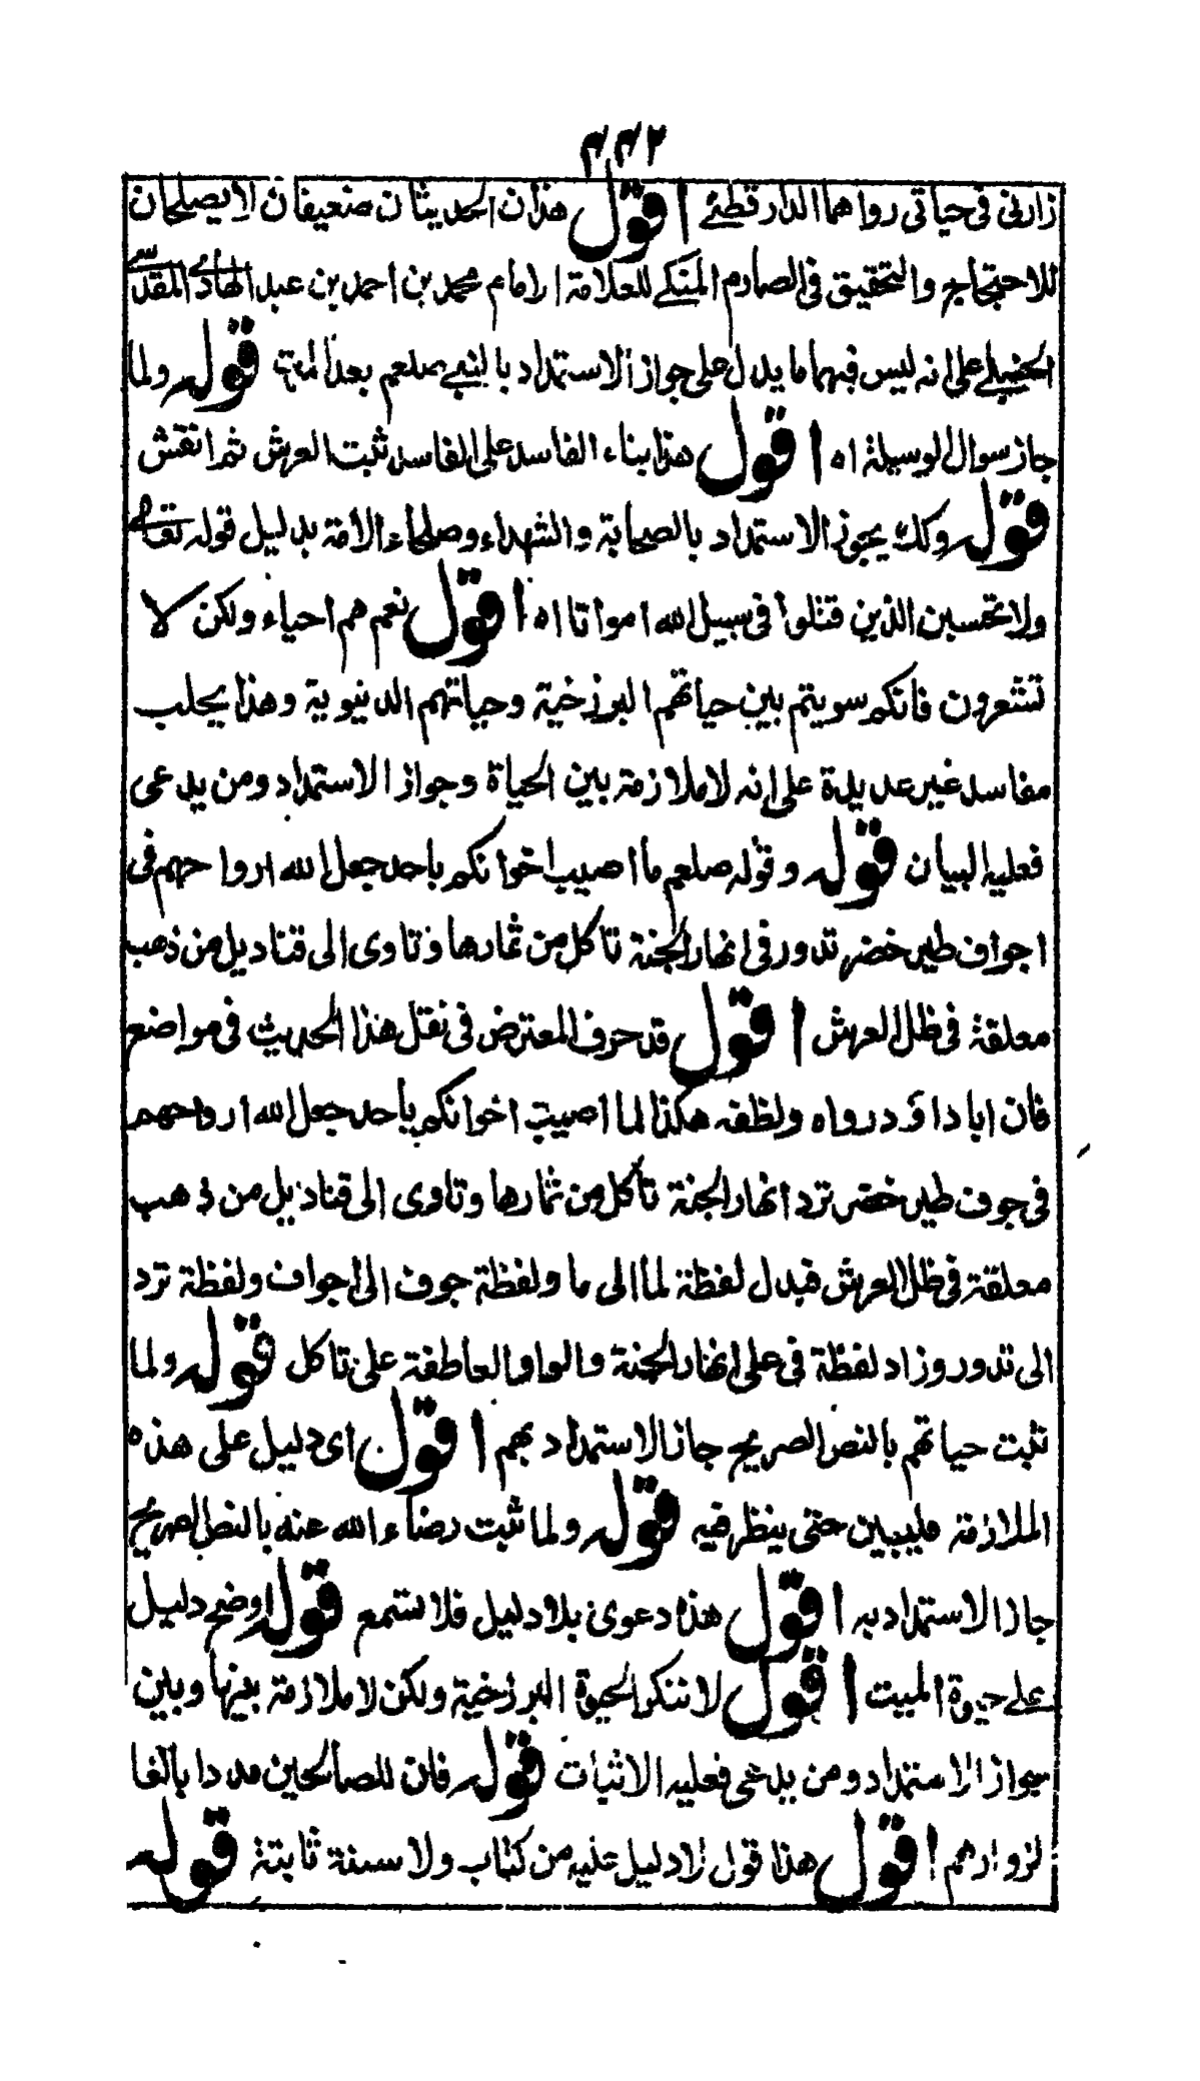 ۴۴۲
زارنی فی حیاتی رواهما الدارقطنے اقول هذان الحدیثان ضعیفان لا یصلحان
للاحتجاج والتحقیق فی الصارم المنکے للعلامة الامام محمد بن احمد بن عبد الهادے المقدسے
الحنبلے علی انه لیس فیهما ما یدل علی جواز الاستمداد بالنبے صلعم بعد قوله ولما
جاز سوال الوسیلة اه اقول هذا بناء الفاسد علی الفاسد ثبت العرش ثم انقش
قوله وکک یجوز الاستمداد بالصحابة والشهداء وصلحاء الامة بدلیل قوله تعالے
ولا تحسبن الذین قتلوا فی سبیل الله امواتا اه اقول نعم هم احیاء ولکن لا
تشعرون فانکم سویتم بین حیاتهم البرزخیة وحیاتهم الدنیویة وهذا یجلب
مفاسد غیر عدیدة علی انه لا ملازمة بین الحیاة وجواز الاستمداد ومن یدعی
فعلیه البیان قوله وقوله صلعم ما اصیب اخوانکم باحد جعل الله ارواحهم فی
اجواف طیر خضر تدور فی انهار الجنة تاکل من ثمارها وتاوی الی قنادیل من ذهب
معلقة فی ظل العرش اقول قد حرف المعترض فی نقل هذا الحدیث فی مواضع
فان ابا داؤد رواه ولفظه هکذا لما اصیب اخوانکم باحد جعل الله ارواحهم
فی جوف طیر خضر ترد انهار الجنة تاکل من ثمارها وتاوی الی قنادیل من ذهب
معلقة فی ظل العرش فبدل لفظة لما الی ما ولفظة جوف الی اجواف ولفظة ترد
الی تدور وزاد لفظة فی علی انهار الجنة والواو العاطفة علی تاکل قوله ولما
ثبت حیاتهم بالنص الصریح جاز الاستمداد بهم اقول ای دلیل علی هذه
الملازمة فلیبین حتی ینظر فیه قوله ولما ثبت رضاء الله عنه بالنص الصریح
جاز الاستمداد به اقول هذا دعوی بلا دلیل فلا تسمع قوله اوضح دلیل
علے حیوة المیت اقول لا ننکر الحیوة البرزخیة ولکن لا ملازمة بینها وبین
جواز الاستمداد ومن یدعی فعلیه الاثبات قوله فان للصالحین مددا بالغا
لزوارهم اقول هذا قول لا دلیل علیه من کتاب ولا سنة ثابتة قوله